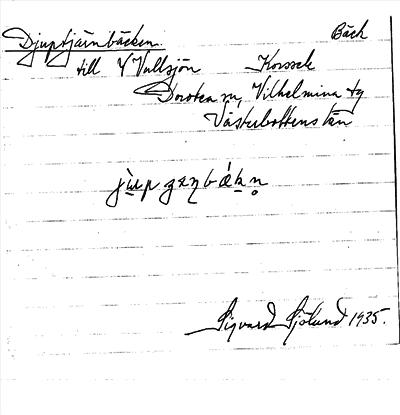 Djuptjärnbäcken. Bäck
till Y Vullsjön Korssele
Dorotea sn, Vilhelmina tg
Västerbottens län
Sigvard Sjölund 1935.